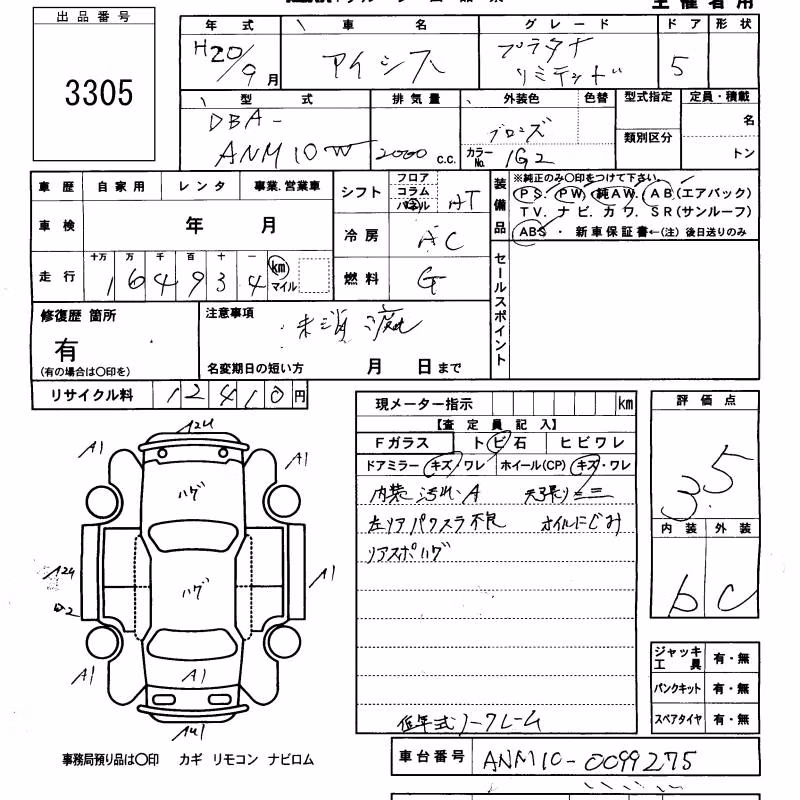 主催者用
出品番号
3305
年式 車名 グレード ドア 形状
H20/9月 アイシス プラタナ リミテッド 5
型式 排気量 外装色 色替 型式指定 定員・積載
DBA-
ANM10W 2000 c.c. ブロンズ 名
カラーNo. 1G2 類別区分 トン
車歴 自家用 レンタ 事業.営業車
シフト フロア コラム パネル AT
装備品 ※純正のみ○印をつけて下さい。
PS. PW. 純AW. AB(エアバック)
TV. ナビ. カワ. SR(サンルーフ)
ABS ・ 新車保証書←(注) 後日送りのみ
車検 年 月
冷房 AC
走行 十万 万 千 百 十 一
164934 km マイル
燃料 G
セールスポイント
修復歴 箇所
有
(有の場合は○印を)
注意事項
名変期日の短い方 月 日まで
リサイクル料 12410円
現メーター指示 km
【査定員記入】
Fガラス トビ石 ヒビワレ
ドアミラー キズ・ワレ ホイール(CP) キズ・ワレ
内装汚れ.A 天張り
左リアパワスラ不良 オイルにじみ
リアスポハゲ
低年式ノークレーム
評価点
3.5
内装 外装
b C
A1 A1
ハゲ
ハゲ
A1
A1
A1 A1
ジャッキ工具 有・無
パンクキット 有・無
スペアタイヤ 有・無
事務局預り品は○印 カギ リモコン ナビロム
車台番号 ANM10-0099275